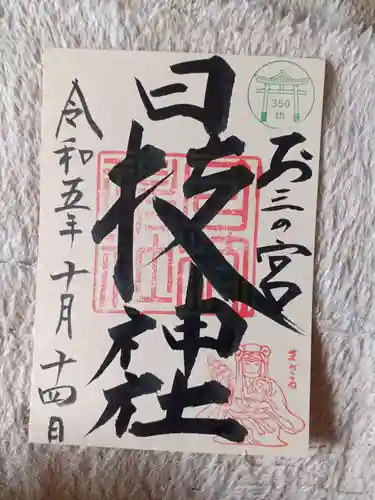 350
th
お三の宮
日枝神社
令和五年十月十四日